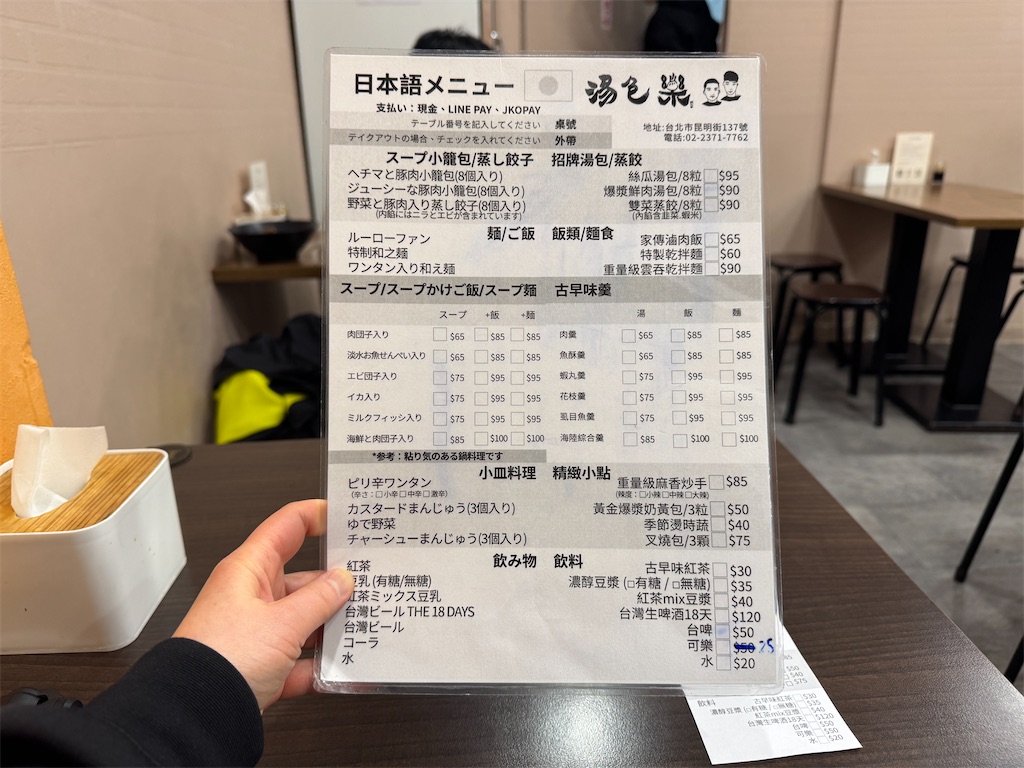 日本語メニュー 湯包樂
支払い：現金、LINE PAY、JKOPAY
テーブル番号を記入してください 桌號
テイクアウトの場合、チェックを入れてください 外帶
地址:台北市昆明街137號
電話:02-2371-7762
スープ小籠包/蒸し餃子 招牌湯包/蒸餃
ヘチマと豚肉小籠包(8個入り) 絲瓜湯包/8粒 $95
ジューシーな豚肉小籠包(8個入り) 爆漿鮮肉湯包/8粒 $90
野菜と豚肉入り蒸し餃子(8個入り) 雙菜蒸餃/8粒 $90
(内餡にはニラとエビが含まれています) (內餡含韭菜.蝦米)
麺/ご飯 飯類/麵食
ルーローファン 家傳滷肉飯 $65
特制和之麺 特製乾拌麵 $60
ワンタン入り和え麺 重量級雲吞乾拌麵 $90
スープ/スープかけご飯/スープ麺 古早味羹
スープ +飯 +麺 湯 飯 麵
肉団子入り $65 $85 $85 肉羹 $65 $85 $85
淡水お魚せんべい入り $65 $85 $85 魚酥羹 $65 $85 $85
エビ団子入り $75 $95 $95 蝦丸羹 $75 $95 $95
イカ入り $75 $95 $95 花枝羹 $75 $95 $95
ミルクフィッシュ入り $75 $95 $95 虱目魚羹 $75 $95 $95
海鮮と肉団子入り $85 $100 $100 海陸綜合羹 $85 $100 $100
*参考：粘り気のある鍋料理です
小皿料理 精緻小點
ピリ辛ワンタン 重量級麻香炒手 $85
(辛さ：□小辛□中辛□激辛) (辣度：□小辣□中辣□大辣)
カスタードまんじゅう(3個入り) 黃金爆漿奶黃包/3粒 $50
ゆで野菜 季節燙時蔬 $40
チャーシューまんじゅう(3個入り) 叉燒包/3顆 $75
飲み物 飲料
紅茶 古早味紅茶 $30
豆乳 (有糖/無糖) 濃醇豆漿 (□有糖 / □無糖) $35
紅茶ミックス豆乳 紅茶mix豆漿 $40
台湾ビール THE 18 DAYS 台灣生啤酒18天 $120
台湾ビール 台啤 $50
コーラ 可樂 $50 25
水 水 $20
$50
$40
$75
飲料
古早味紅茶 $30
濃醇豆漿 (□有糖 / □無糖) $35
紅茶mix豆漿 $40
台灣生啤酒18天 $120
台啤 $50
可樂 $50
水 $20